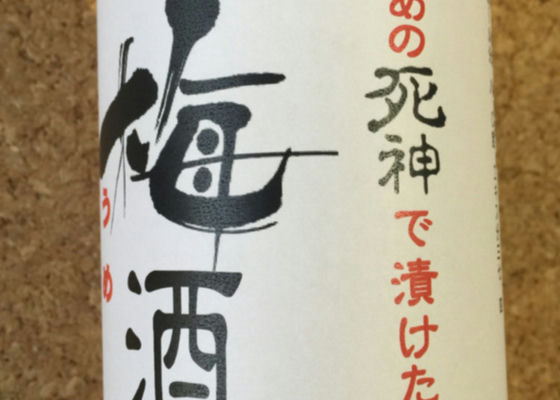 めの死神で漬けた
梅酒
うめ